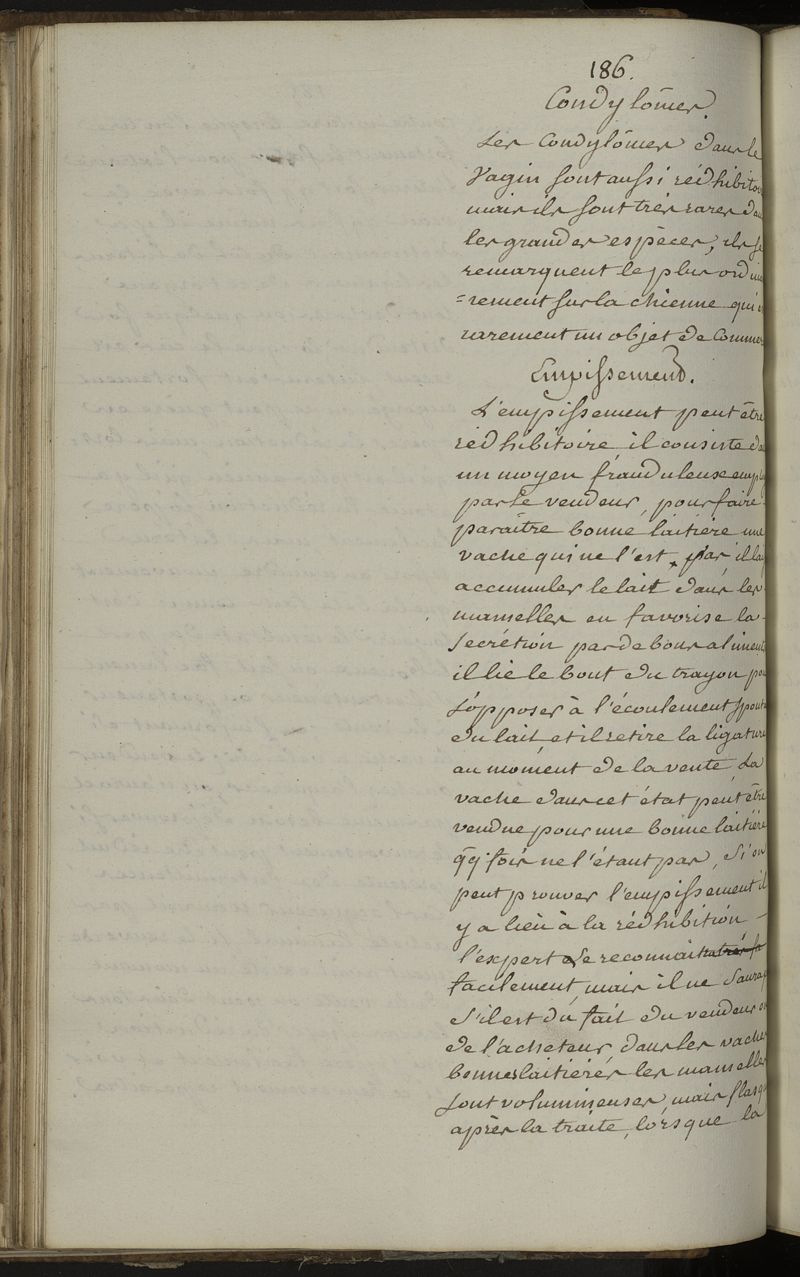 186.
Condylômes.
Les Condylômes dans le
Vagin sont aussi rédhibitoi
mais ils sont très rares da
les grandes espèces, ils se
remarquent le plus ordinai
=rement sur la chienne qui e
rarement un objet de Commer
Empissement.
L'empissement peut être
rédhibitoire, il consiste da
un moyen frauduleuse employ
par le vendeur, pour faire
paraître bonne laitière une
vache qui ne l'est pas, il la
accumuler le lait dans les
mamelles en favorise la
Secrétion par de bons aliments
il lie le bout du trayon po
s'opposer à l'écoulement spont
du lait et il retire la ligature
au moment de la vente, La
vache dans cet état peut être
vendue pour une bonne laitière
qq. fois ne l'étant pas, Si on
peut prouver l'empissement il
y a lieu à la rédhibition —
l'expert le reconnait
facilement, mais il ne Saura
S'il est du fait du vendeur ou
de l'acheteur, dans les vaches
bonnes laitières les mamelles
Sont volumineuses, mais flasq
après la traite, lorsque la